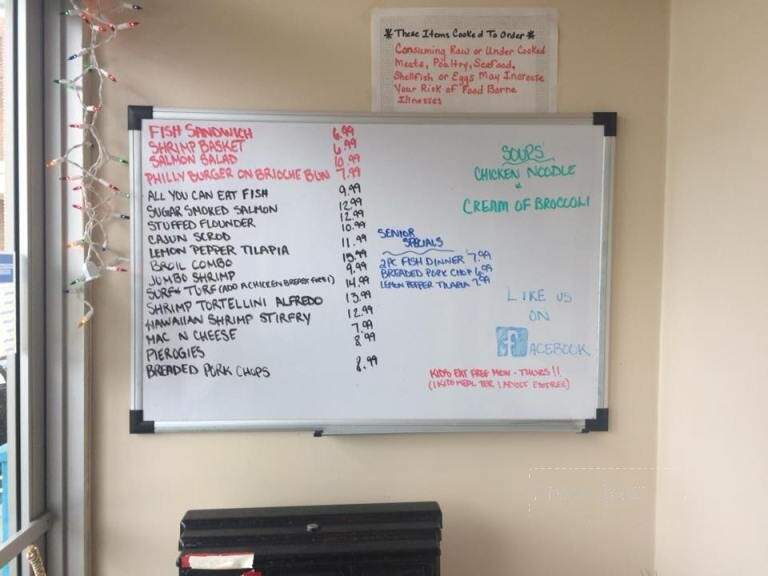 *These Items Cooked To Order*
Consuming Raw or Under Cooked
Meats, Poultry, Seafood,
Shellfish or Eggs May Increase
Your Risk of Food Borne
Illnesses
FISH SANDWICH 6.99
SHRIMP BASKET 6.99
SALMON SALAD 10.99
PHILLY BURGER ON BRIOCHE BUN 7.99
ALL YOU CAN EAT FISH 9.99
SUGAR SMOKED SALMON 12.99
STUFFED FLOUNDER 12.99
CAJUN SCROD 10.99
LEMON PEPPER TILAPIA 11.99
BROIL COMBO
JUMBO SHRIMP 9.99
SURF + TURF (ADD A CHICKEN BREAST FOR $1) 14.99
SHRIMP TORTELLINI ALFREDO 13.99
HAWAIIAN SHRIMP STIRFRY 12.99
MAC N CHEESE 7.99
PIEROGIES 8.99
BREADED PORK CHOPS 8.99
SENIOR
SPECIALS
2PC FISH DINNER 7.99
BREADED PORK CHOP 6.99
LEMON PEPPER TILAPIA 7.99
SOUPS
CHICKEN NOODLE
+
CREAM OF BROCCOLI
LIKE US
ON
FACEBOOK
KIDS EAT FREE MON - THURS!!
(1 KIDS MEAL PER 1 ADULT ENTREE)